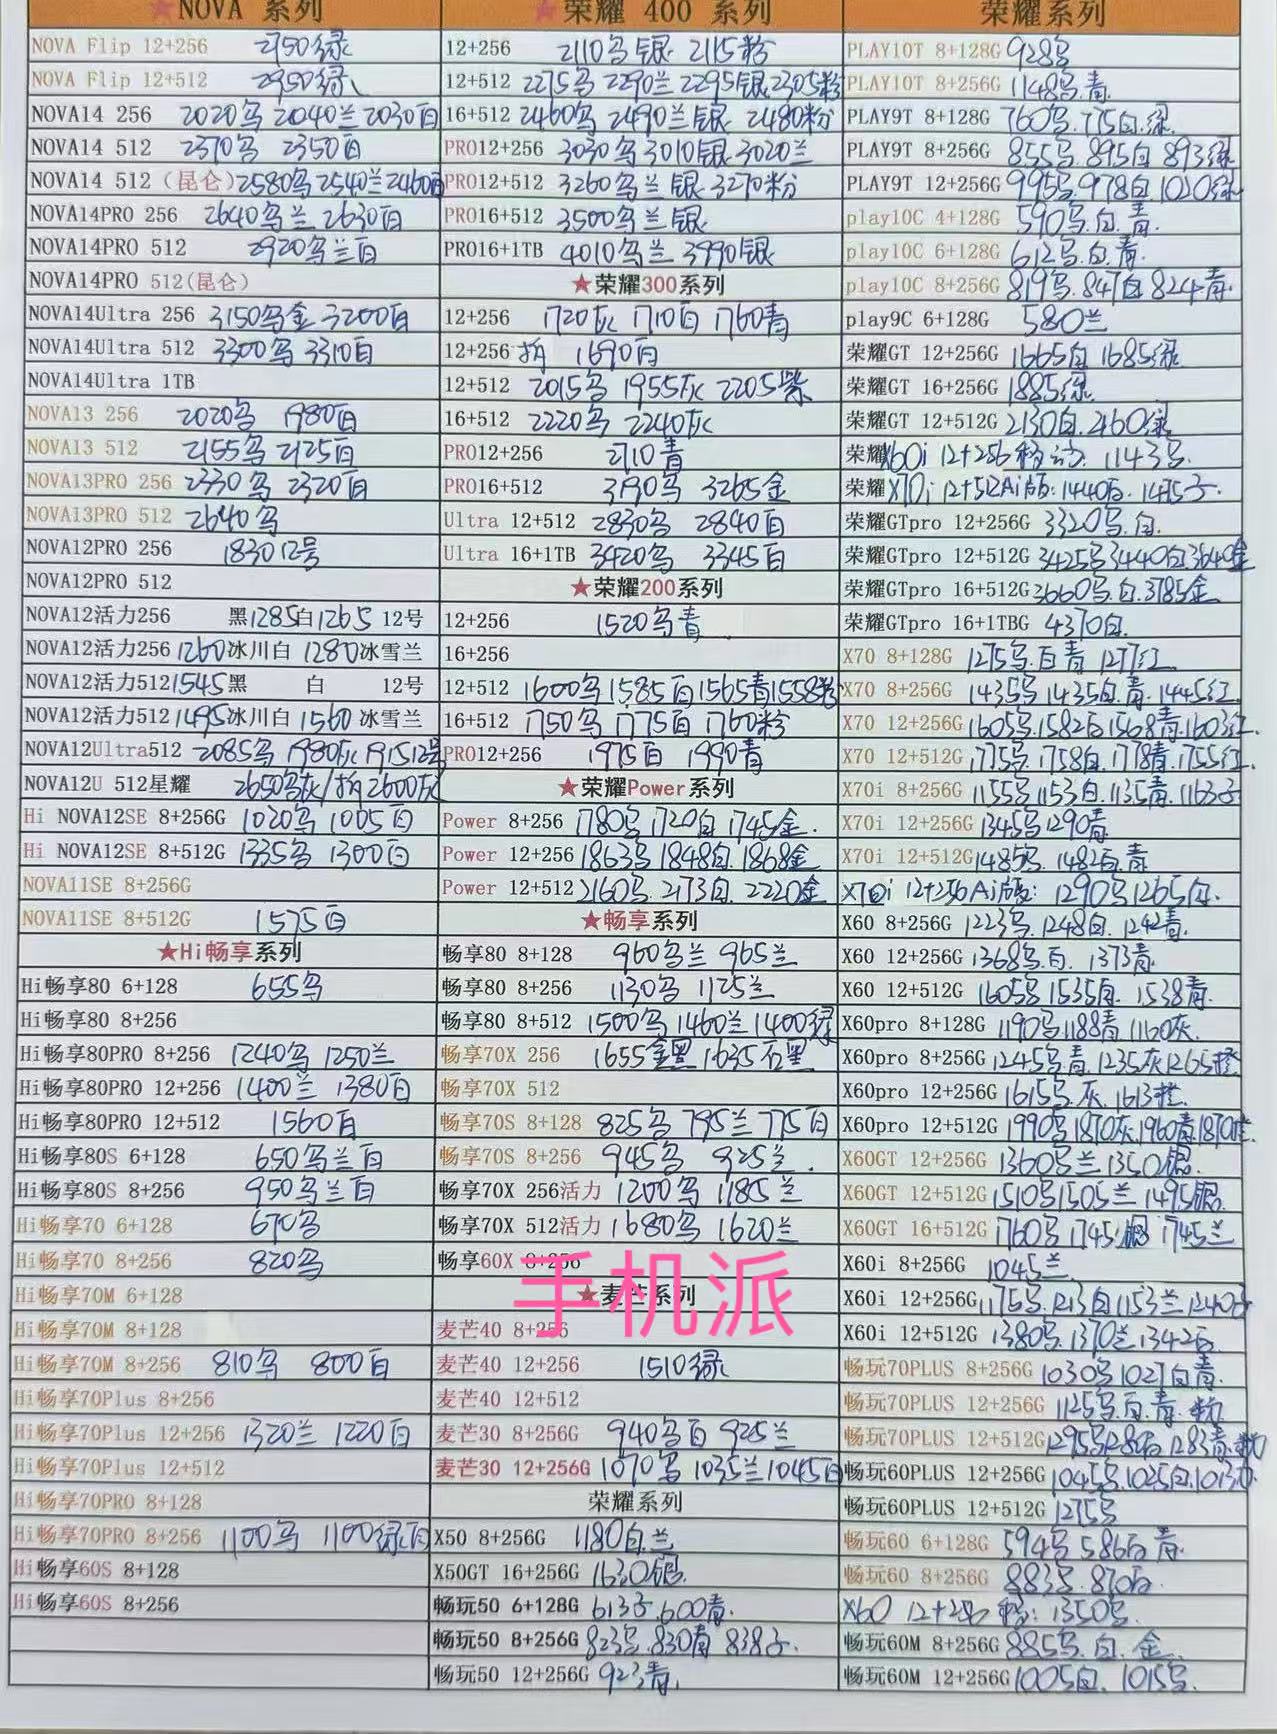 ★NOVA 系列
NOVA Flip 12+256 2750绿
NOVA Flip 12+512 2950绿
NOVA14 256 2020鸟 2040兰 2030百
NOVA14 512 2370鸟 2350百
NOVA14 512（昆仑）2580鸟 2540兰 2460百
NOVA14PRO 256 2640鸟兰 2630百
NOVA14PRO 512 2920鸟兰百
NOVA14PRO 512(昆仑)
NOVA14Ultra 256 3150鸟金 3200百
NOVA14Ultra 512 3300鸟 3310百
NOVA14Ultra 1TB
NOVA13 256 2020鸟 1980百
NOVA13 512 2155鸟 2125百
NOVA13PRO 256 2330鸟 2320百
NOVA13PRO 512 2640鸟
NOVA12PRO 256 1830 12号
NOVA12PRO 512
NOVA12活力256 黑1285白1265 12号
NOVA12活力256 1260冰川白 1280冰雪兰
NOVA12活力512 1545黑 白 12号
NOVA12活力512 1495冰川白 1560冰雪兰
NOVA12Ultra512 2085鸟 1980灰 1915 12号
NOVA12U 512星耀 2650鸟灰/拆2600灰
Hi NOVA12SE 8+256G 1020鸟 1005百
Hi NOVA12SE 8+512G 1335鸟 1300百
NOVA11SE 8+256G
NOVA11SE 8+512G 1575百
★Hi畅享系列
Hi畅享80 6+128 655鸟
Hi畅享80 8+256
Hi畅享80PRO 8+256 1240鸟 1250兰
Hi畅享80PRO 12+256 1400兰 1380百
Hi畅享80PRO 12+512 1560百
Hi畅享80S 6+128 650鸟兰百
Hi畅享80S 8+256 950鸟兰百
Hi畅享70 6+128 670鸟
Hi畅享70 8+256 820鸟
Hi畅享70M 6+128
Hi畅享70M 8+128
Hi畅享70M 8+256 810鸟 800百
Hi畅享70Plus 8+256
Hi畅享70Plus 12+256 1320兰 1220百
Hi畅享70Plus 12+512
Hi畅享70PRO 8+128
Hi畅享70PRO 8+256 1100鸟 1100绿百
Hi畅享60S 8+128
Hi畅享60S 8+256
★荣耀 400 系列
12+256 2110鸟银 2115粉
12+512 2275鸟 2290兰 2295银 2305粉
16+512 2460鸟 2490兰银 2480粉
PRO12+256 3030鸟 3010银 3020兰
PRO12+512 3260鸟兰银 3270粉
PRO16+512 3500鸟兰银
PRO16+1TB 4010鸟兰 3990银
★荣耀300系列
12+256 1720灰 1710百 1760青
12+256 拆 1690百
12+512 2015鸟 1955灰 2205紫
16+512 2220鸟 2240灰
PRO12+256 2710青
PRO16+512 3190鸟 3265金
Ultra 12+512 2830鸟 2840百
Ultra 16+1TB 3420鸟 3345百
★荣耀200系列
12+256 1520鸟青
16+256
12+512 1600鸟 1585百 1565青 1558粉
16+512 1750鸟 1775百 1760粉
PRO12+256 1975百 1990青
★荣耀Power系列
Power 8+256 1780鸟 1720白 1745金.
Power 12+256 1863鸟 1848白. 1868金
Power 12+512 2160鸟. 2173白. 2220金
★畅享系列
畅享80 8+128 960鸟兰 965兰
畅享80 8+256 1130鸟 1125兰
畅享80 8+512 1500鸟 1460兰 1400绿
畅享70X 256 1655金黑 1635石黑
畅享70X 512
畅享70S 8+128 825鸟 795兰 775百
畅享70S 8+256 945鸟 925兰.
畅享70X 256活力 1200鸟 1185兰
畅享70X 512活力 1680鸟 1620兰
畅享60X 8+256
手机派
★麦芒系列
麦芒40 8+256
麦芒40 12+256 1510绿
麦芒40 12+512
麦芒30 8+256G 940鸟百 925兰
麦芒30 12+256G 1070鸟 1035兰 1045百
荣耀系列
X50 8+256G 1180白.兰
X50GT 16+256G 1630银.
畅玩50 6+128G 613子.600青.
畅玩50 8+256G 823鸟.830青 838子.
畅玩50 12+256G 923青.
荣耀系列
PLAY10T 8+128G 928鸟
PLAY10T 8+256G 1148鸟.青.
PLAY9T 8+128G 760鸟.775白.绿.
PLAY9T 8+256G 855鸟.895白 893绿
PLAY9T 12+256G 995鸟.978白 1020绿
play10C 4+128G 590鸟.白.青.
play10C 6+128G 612鸟.白.青.
play10C 8+256G 819鸟.847白 824青.
play9C 6+128G 580兰
荣耀GT 12+256G 1665白 1685绿
荣耀GT 16+256G 1885绿.
荣耀GT 12+512G 2130白.2160绿
荣耀X60i 12+256 移动. 1143鸟.
荣耀X70i 12+512Ai版:1440百. 1475子.
荣耀GTpro 12+256G 3320鸟.白.
荣耀GTpro 12+512G 3425鸟3440白3640金
荣耀GTpro 16+512G 3660鸟.白.3785金
荣耀GTpro 16+1TBG 4370白.
X70 8+128G 1275鸟.百青 1277红
X70 8+256G 1435鸟1435白.青.1445红
X70 12+256G 1605鸟.1582百1568青.1603红.
X70 12+512G 1775鸟.1758白.1778青.1755红.
X70i 8+256G 1155鸟1153白.1135青.1163子
X70i 12+256G 1345鸟1290青
X70i 12+512G 1485鸟. 1482百.青
X70i 12+256Ai版: 1290鸟1265白.
X60 8+256G 1223鸟.1248白.1242青.
X60 12+256G 1368鸟.百. 1373青.
X60 12+512G 1605鸟 1535百. 1538青.
X60pro 8+128G 1190鸟1188青 1120灰.
X60pro 8+256G 1245鸟青.1235灰1265橙
X60pro 12+256G 1615鸟.灰.1613橙.
X60pro 12+512G 1990鸟1870灰.1960青1870橙.
X60GT 12+256G 1360鸟兰 1350银.
X60GT 12+512G 1510鸟1505兰 1495银.
X60GT 16+512G 1760鸟 1745银 1745兰
X60i 8+256G 1045兰
X60i 12+256G 1175鸟.1213白1153兰1240子
X60i 12+512G 1380鸟.1370兰1342百.
畅玩70PLUS 8+256G 1030鸟1027白青.
畅玩70PLUS 12+256G 1125鸟.百.青.粉
畅玩70PLUS 12+512G 1295鸟1280百 1283青.粉
畅玩60PLUS 12+256G 1045鸟1025白.1013
畅玩60PLUS 12+512G 1275鸟
畅玩60 6+128G 594鸟 586百 青.
畅玩60 8+256G 883鸟.870百.
X60 12+256 移: 1350鸟.
畅玩60M 8+256G 885鸟.白.金
畅玩60M 12+256G 1005白. 1015鸟.